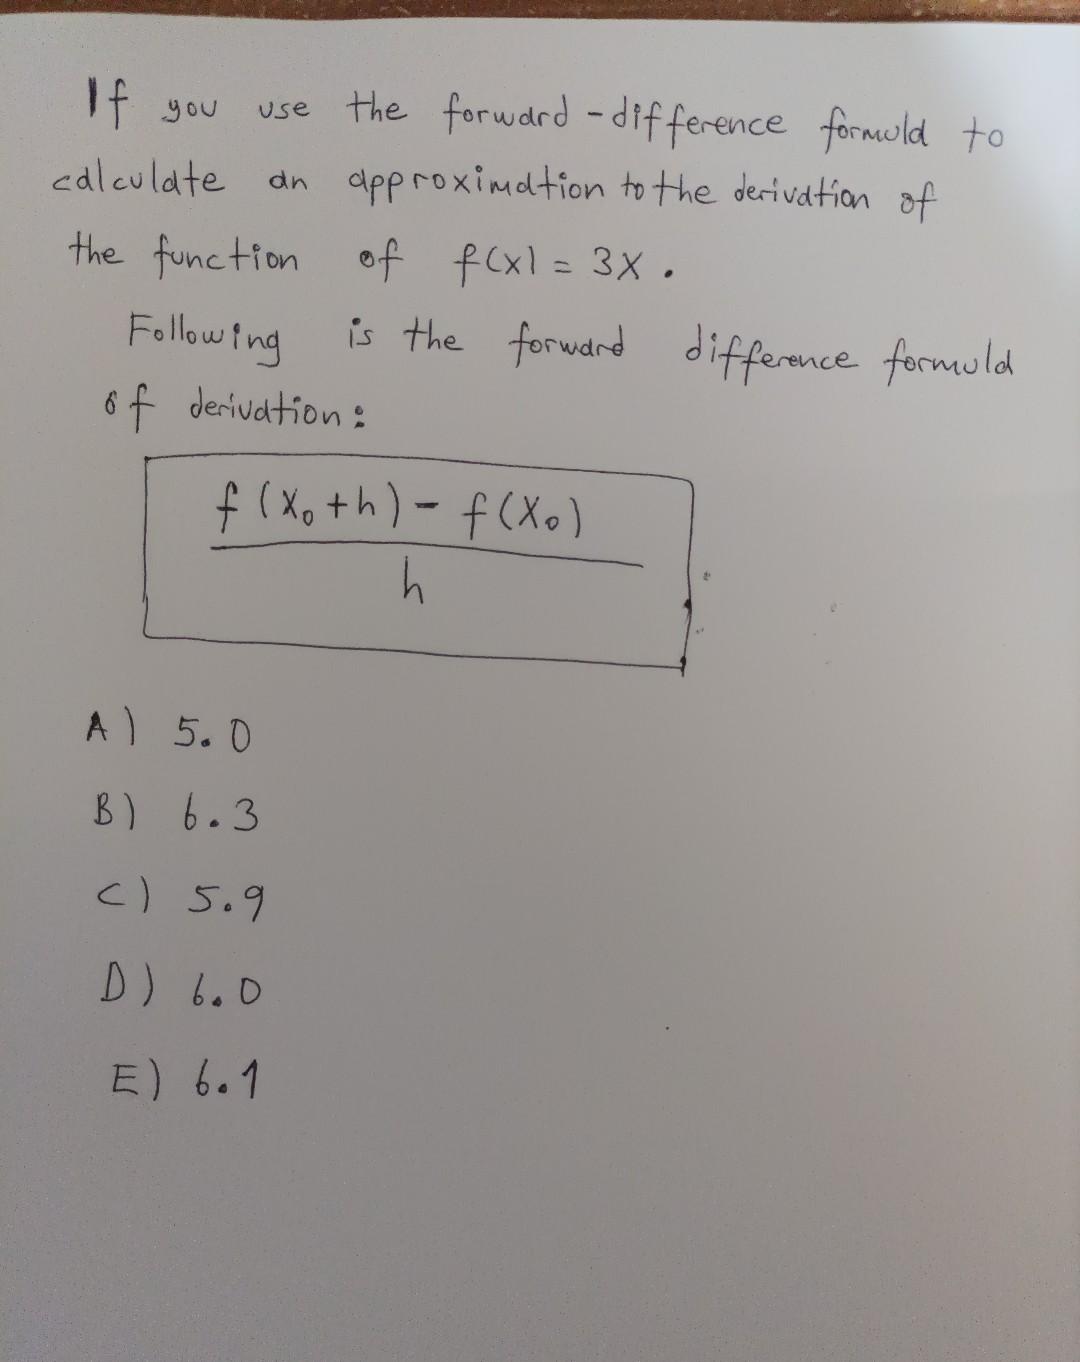 If you use the forward-difference formula to
calculate an approximation to the derivation of
the function of f(x) = 3X.
Following is the forward difference formula
of derivation:
f(X₀+h) - f(X₀)
h
A) 5.0
B) 6.3
C) 5.9
D) 6.0
E) 6.1